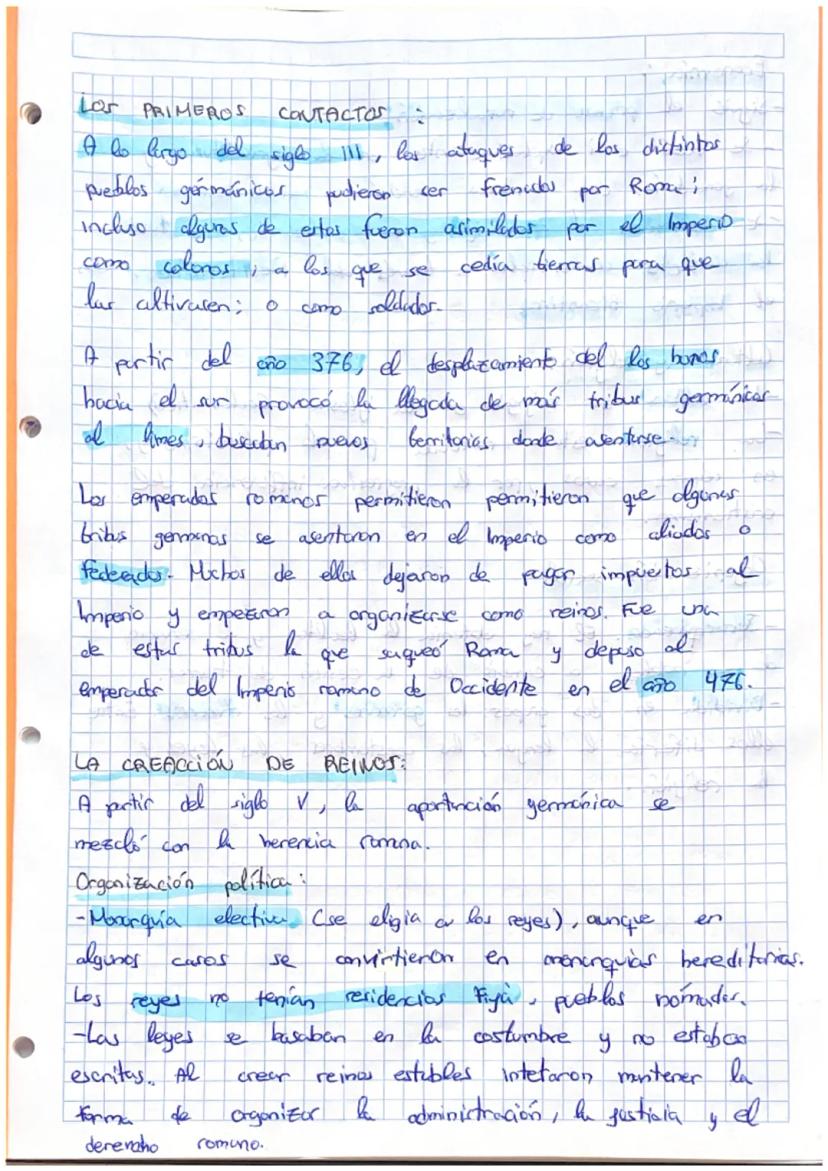 LOS PRIMEROS CONTACTOS :
A lo largo del siglo III, los ataques de los distintos
pueblos germánicos pudieron ser frenados por Roma;
incluso algunos de estos fueron asimilados por el Imperio
como colonos, a los que se cedía tierras para que
las altivasen; o como soldados.
A partir del año 376, el desplazamiento del los hunos
hacia el sur provocó la llegada de más tribus germánicas
al limes, buscaban nuevos territorios donde asentarse.
Los emperados romanos permitieron permitieron que algunas
tribus germanas se asentaron en el Imperio como aliados o
federados. Muchos de ellos dejaron de pagar impuestos al
Imperio y empezaron a organizarse como reinos. Fue una
de estas tribus la que saqueó Roma y depuso al
emperador del Imperio romano de Occidente en el año 476.
LA CREACCIÓN DE REINOS:
A partir del siglo V, la aportanción germánica se
mezcló con la herencia romana.
Organización política:
-Monarquía electiva (se eligia a los reyes), aunque en
algunos casos se convirtieron en menarquías hereditarias.
Los reyes no tenían residencias fiya, pueblos nómadas.
-Las leyes se basaban en la costumbre y no estaban
escritas. Al crear reinos estables intetaron mantener la
forma de organizar la administración, la justicia y el
derenaho romano.